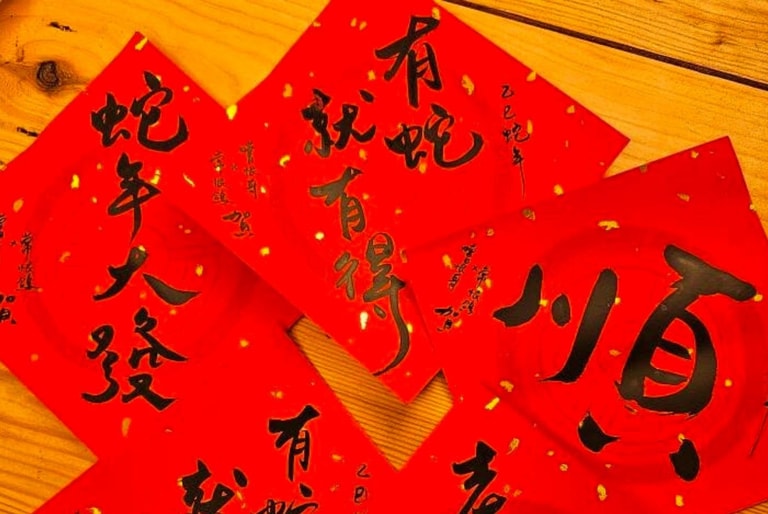 蛇年大發
賀
有蛇
就有得
乙巳蛇年
賀
順
賀
有蛇
就
乙巳